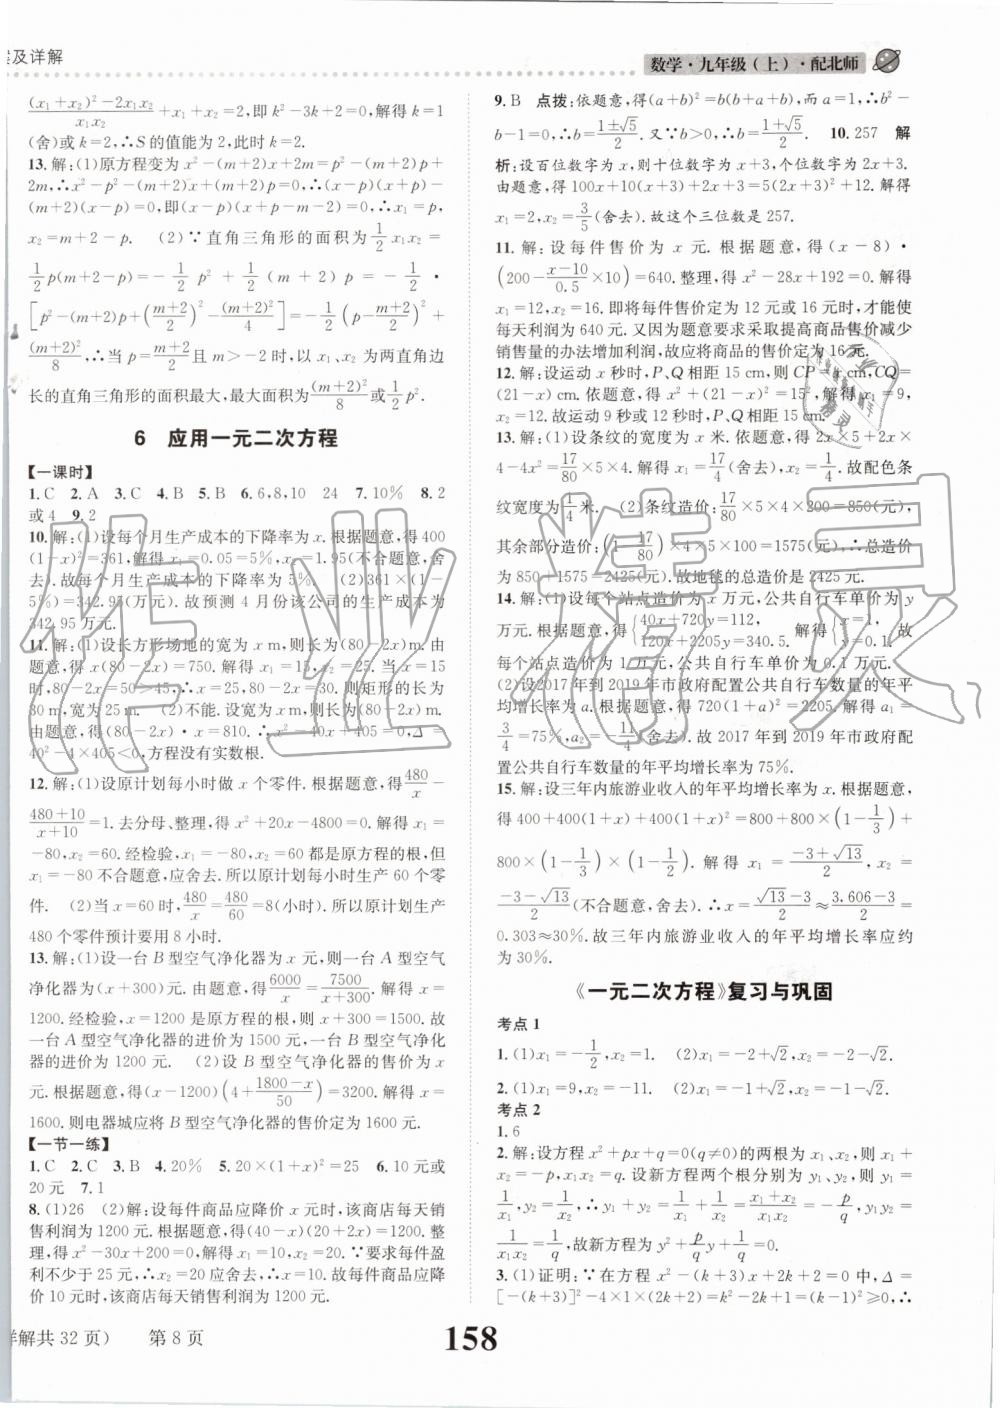 案及详解
数学·九年级(上)·配北师
(x₁+x₂)²-2x₁x₂/x₁x₂+x₁+x₂=2,即 k²-3k+2=0,解得 k=1
(舍)或 k=2,∴S 的值能为 2,此时 k=2.
13.解:(1)原方程变为 x²-(m+2)x+2m=p²-(m+2)p+
2m,∴x²-p²-(m+2)x+(m+2)p=0,∴(x-p)(x+p)-
(m+2)(x-p)=0,即(x-p)(x+p-m-2)=0,∴x₁=p,
x₂=m+2-p. (2)∵直角三角形的面积为 1/2 x₁x₂=
1/2 p(m+2-p)=-1/2 p²+1/2(m+2)p=-1/2·
[p²-(m+2)p+(m+2/2)²-(m+2)²/4]=-1/2(p-m+2/2)²+
(m+2)²/8,∴当 p=m+2/2 且 m>-2 时,以 x₁、x₂ 为两直角边
长的直角三角形的面积最大,最大面积为(m+2)²/8 或 1/2 p².
6 应用一元二次方程
【一课时】
1.C 2.A 3.C 4.B 5.B 6.6,8,10 24 7.10% 8.2
或4 9.2
10.解:(1)设每个月生产成本的下降率为 x,根据题意,得 400
(1-x)²=361,解得 x₁=0.05=5%,x₂=1.95(不合题意,舍
去).故每个月生产成本的下降率为 5%. (2)361×(1-
5%)=342.95(万元).故预测 4 月份该公司的生产成本为
342.95 万元.
11.解:(1)设长方形场地的宽为 x m,则长为(80-2x) m.由
题意,得 x(80-2x)=750.解得 x₁=15,x₂=25.当 x=15
时,80-2x=50>45,∴x=25,80-2x=30.则矩形的长为
30 m,宽为 25 m. (2)不能.设宽为 x m,则长为(80-2x) m.
由题意,得(80-2x)·x=810.∴x²-40x+405=0,Δ=
40²-4×405<0,方程没有实数根.
12.解:(1)设原计划每小时做 x 个零件.根据题意,得 480/x-
480+10/x+10=1.去分母、整理,得 x²+20x-4800=0.解得 x₁=
-80,x₂=60.经检验,x₁=-80,x₂=60 都是原方程的根,但
x₁=-80 不合题意,应舍去.所以原计划每小时生产 60 个零
件. (2)当 x=60 时,480/x=480/60=8(小时).所以原计划生产
480 个零件预计要用 8 小时.
13.解:(1)设一台 B 型空气净化器为 x 元,则一台 A 型空气
净化器为(x+300)元.由题意,得 6000/x=7500/x+300.解得 x=
1200.经检验,x=1200 是原方程的根,则 x+300=1500.故
一台 A 型空气净化器的进价为 1500 元,一台 B 型空气净化
器的进价为 1200 元. (2)设 B 型空气净化器的售价为 x
元.根据题意,得(x-1200)(4+1800-x/50)=3200.解得 x=
1600.则电器城应将 B 型空气净化器的售价定为 1600 元.
【一节一练】
1.C 2.C 3.B 4.20% 5.20×(1+x)²=25 6.10 元或
20 元 7.1
8.(1)26 (2)解:设每件商品应降价 x 元时,该商店每天销
售利润为 1200 元.根据题意,得(40-x)(20+2x)=1200.整
理,得 x²-30x+200=0.解得 x₁=10,x₂=20.∵要求每件盈
利不少于 25 元,∴x₂=20 应舍去,∴x=10.故每件商品应降
价 10 元时,该商店每天销售利润为 1200 元.
9.B 点拨:依题意,得(a+b)²=b(b+a+b),而 a=1,∴b²-
b-1=0,∴b=1±√5/2.又∵b>0,∴b=1+√5/2. 10.257 解
析:设百位数字为 x,则十位数字为 x+3,个位数字为 2x+3.
由题意,得 100x+10(x+3)+2x+3=5(2x+3)²+12.解得
x₁=2,x₂=3/5(舍去).故这个三位数是 257.
11.解:设每件售价为 x 元.根据题意,得(x-8)·
(200-x-10/0.5×10)=640.整理,得 x²-28x+192=0.解得
x₁=12,x₂=16.即将每件售价定为 12 元或 16 元时,才能使
每天利润为 640 元.又因为题意要求采取提高商品售价减少
销售量的办法增加利润,故应将商品的售价定为 16 元.
12.解:设运动 x 秒时,P、Q 相距 15 cm,则 CP=x cm,CQ=
(21-x) cm.依题意,得 x²+(21-x)²=15².解得 x₁=9,
x₂=12.故运动 9 秒或 12 秒时,P、Q 相距 15 cm.
13.解:(1)设条纹的宽度为 x 米.依题意,得 2x×5+2x×
4-4x²=17/80×5×4.解得 x₁=17/4(舍去),x₂=1/4.故配色条
纹宽度为 1/4 米. (2)条纹造价:17/80×5×4×200=850(元),
其余部分造价:(1-17/80)×4×5×100=1575(元),∴总造价
为 850+1575=2425(元).故地毯的总造价是 2425 元.
14.解:(1)设每个站点造价为 x 万元,公共自行车单价为 y
万元.根据题意,得{40x+720y=112, 120x+2205y=340.5. 解得{x=1, y=0.1. 故
每个站点造价为 1 万元,公共自行车单价为 0.1 万元.
(2)设 2017 年到 2019 年市政府配置公共自行车数量的年平
均增长率为 a.根据题意,得 720(1+a)²=2205.解得 a₁=
3/4=75%,a₂=-11/4(舍去).故 2017 年到 2019 年市政府配
置公共自行车数量的年平均增长率为 75%.
15.解:设三年内旅游业收入的年平均增长率为 x.根据题意,
得 400+400(1+x)+400(1+x)²=800+800×(1-1/3)+
800×(1-1/3)×(1-1/4).解得 x₁=-3+√13/2,x₂=
-3-√13/2(不合题意,舍去).∴x=√13-3/2≈3.606-3/2=
0.303≈30%.故三年内旅游业收入的年平均增长率应约
为 30%.
《一元二次方程》复习与巩固
考点 1
1.(1)x₁=-1/2,x₂=1. (2)x₁=-2+√2,x₂=-2-√2.
2.(1)x₁=9,x₂=-11. (2)x₁=√2,x₂=-√2.
考点 2
1.6
2.解:设方程 x²+px+q=0(q≠0)的两根为 x₁、x₂,则 x₁+
x₂=-p,x₁x₂=q.设新方程两个根分别为 y₁、y₂,则 y₁=
1/x₁,y₂=1/x₂,∴y₁+y₂=1/x₁+1/x₂=x₁+x₂/x₁x₂=-p/q,y₁y₂=
1/x₁x₂=1/q,故新方程为 y²+p/q y+1/q=0.
3.(1)证明:∵在方程 x²-(k+3)x+2k+2=0 中,Δ=
[-(k+3)]²-4×1×(2k+2)=k²-2k+1=(k-1)²≥0,∴
详解共 32 页) 第 8 页
158
作业精灵